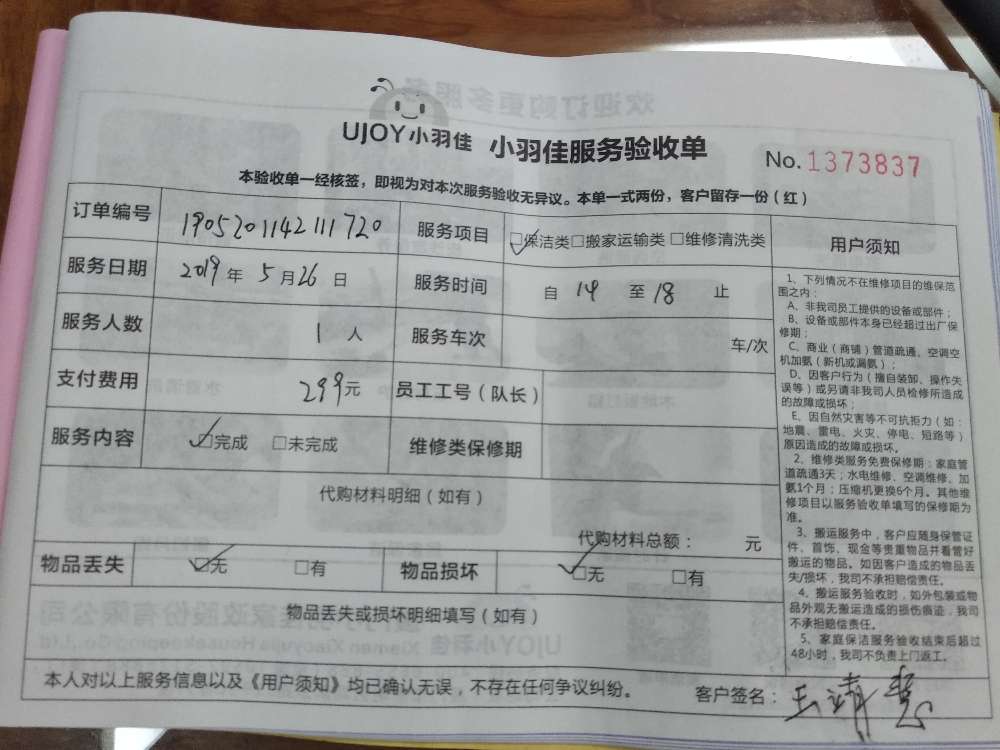 UJOY小羽佳 小羽佳服务验收单 No. 1373837
本验收单一经核签，即视为对本次服务验收无异议。本单一式两份，客户留存一份（红）
订单编号 190520114211720 服务项目 保洁类 搬家运输类 维修清洗类
服务日期 2019年5月26日 服务时间 自 14 至 18 止
服务人数 1人 服务车次 车/次
支付费用 299元 员工工号（队长）
服务内容 完成 未完成 维修类保修期
代购材料明细（如有）
代购材料总额： 元
物品丢失 无 有 物品损坏 无 有
物品丢失或损坏明细填写（如有）
本人对以上服务信息以及《用户须知》均已确认无误，不存在任何争议纠纷。 客户签名：
用户须知
1、下列情况不在维修项目的维保范
围之内：
A、非我司员工提供的设备或部件；
B、设备或部件本身已经超过出厂保
修期；
C、商业（商铺）管道疏通、空调空
机加氨（新机或漏氨）；
D、因客户行为（擅自装卸、操作失
误等）或另请非我司人员检修所造成
的故障或损坏；
E、因自然灾害等不可抗拒力（如：
地震、雷电、火灾、停电、短路等）
原因造成的故障或损坏。
2、维修类服务免费保修期：家庭管
道疏通3天；水电维修、空调维修、加
氨1个月；压缩机更换6个月。其他维
修项目以服务验收单填写的保修期为
准。
3、搬运服务中，客户应随身保管证
件、首饰、现金等贵重物品并看管好
搬运的物品。如因客户造成的物品丢
失/损坏，我司不承担赔偿责任。
4、搬运服务验收时，如外包装或物
品外观无搬运造成的损伤痕迹，我司
不承担赔偿责任。
5、家庭保洁服务验收结束后超过
48小时，我司不负责上门返工。